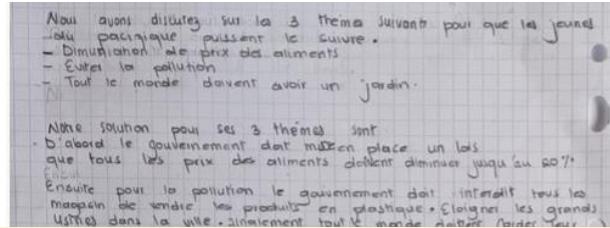 Nous avons discutez sur la 3 thème suivant pour que les jeunes
du pacigique puissent le suivre.
- Dimunation de prix des aliments
- Eviter la pollution
- Tout le monde doivent avoir un jardin.
Notre solution pour ses 3 thèmes sont
D'abord le gouvernement doit mettre en place un lois
que tous les prix des alliments doivent diminuer jusqu'au 20%.
Ensuite pour la pollution le gouvernement doit interdit tous les
magasin de vendre les produits en plastique. Eloigner les grands
usines dans la ville. Finalement tout le monde doivent